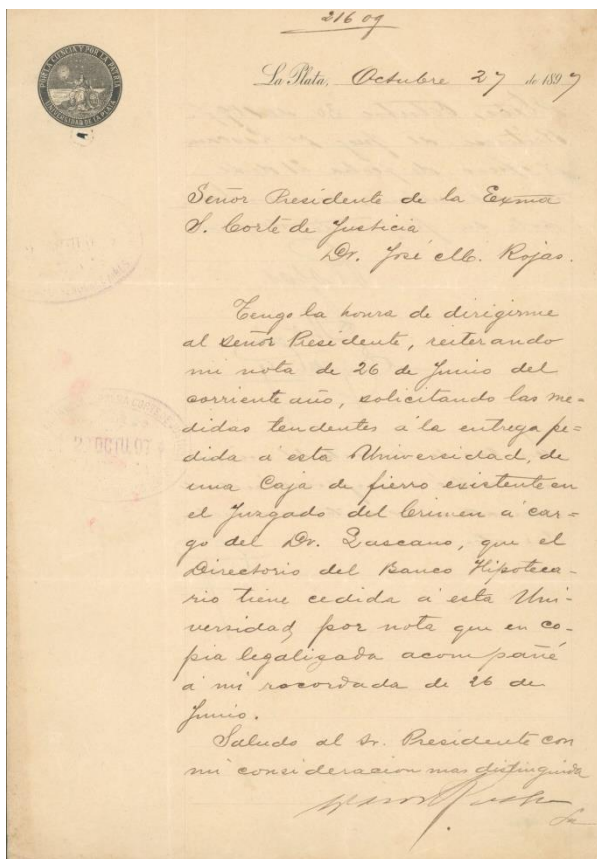 216 09
POR LA CIENCIA Y POR LA PATRIA
UNIVERSIDAD DE LA PLATA
La Plata, Octubre 27 de 1897
Señor Presidente de la Exma
S. Corte de Justicia
Dr. José M. Rojas.
Tengo la honra de dirigirme
al Señor Presidente, reiterando
mi nota de 26 de Junio del
corriente año, solicitando las me-
didas tendentes á la entrega pe-
dida á esta Universidad, de
una Caja de fierro existente en
el Juzgado del Crimen á car-
go del Dr. Lascano, que el
Directorio del Banco Hipoteca-
rio tiene cedida á esta Uni-
versidad, por nota que en co-
pia legalizada acompañé
á mi recordada de 26 de
Junio.
Saludo al Sr. Presidente con
mi consideracion mas distinguida